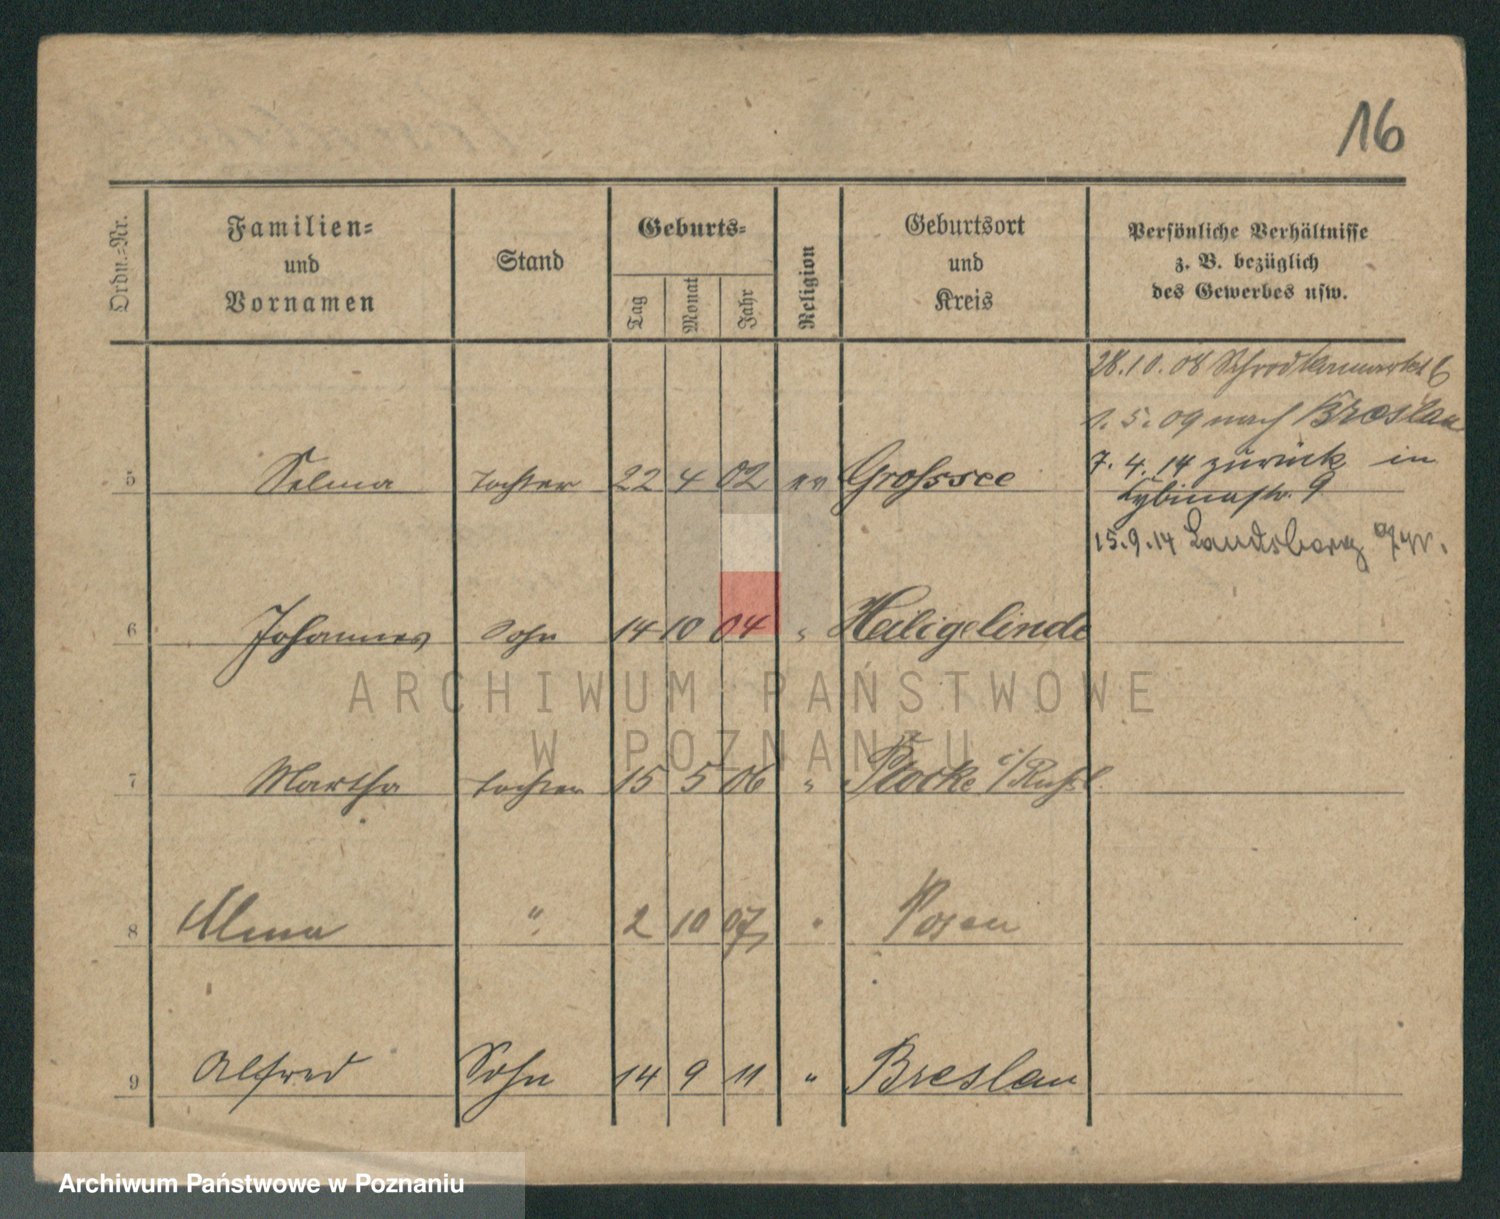 16
Ordn.-Nr.
Familien-
und
Vornamen
Stand
Geburts-
Tag
Monat
Jahr
Religion
Geburtsort
und
Kreis
Persönliche Verhältnisse
z. B. bezüglich
des Gewerbes usw.
28.10.08 Schrodkamarkt 6
1.5.09 nach Breslau
7.4.14 zurück in
Cybinastr. 9
15.9.14 Landsberg
5 Selma Tochter 22 4 02 ev Grosssee
6 Johannes Sohn 14 10 04 " Heiligelinde
ARCHIWUM PAŃSTWOWE
W POZNANIU
7 Martha Tochter 15 5 06 " Plocke i/Russl.
8 Alma " 2 10 07 " Posen
9 Alfred Sohn 14 9 11 " Breslau
Archiwum Państwowe w Poznaniu